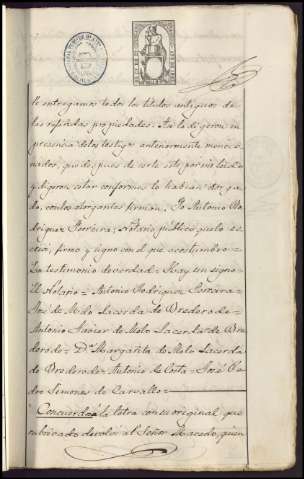 le entregamos todos los titulos antiguos de
las referidas propiedades. Asi lo digeron en
presencia de los testigos anteriormente mencio-
nados, que despues de serles esto por mi leido
y digeron estar conforme lo habian
do, con los otorgantes firman. Yo Antonio Ro-
driguez Ferreira, Notario público que lo es-
cribí, firmo y signo con el que acostumbro=
En testimonio de verdad= Hay un signo=
El Notario= Antonio Rodriguez Ferreira=
José de Melo Lacerda de Brederode=
Antonio Xavier de Melo Lacerda de Bre-
derode= Dª Margarita de Melo Lacerda
de Brederode= Antonio da Costa= José Pe-
dro Semenas de Carvallo=
Concuerda á la letra con su original, que
rubricado devolví al Señor Macedo, quien